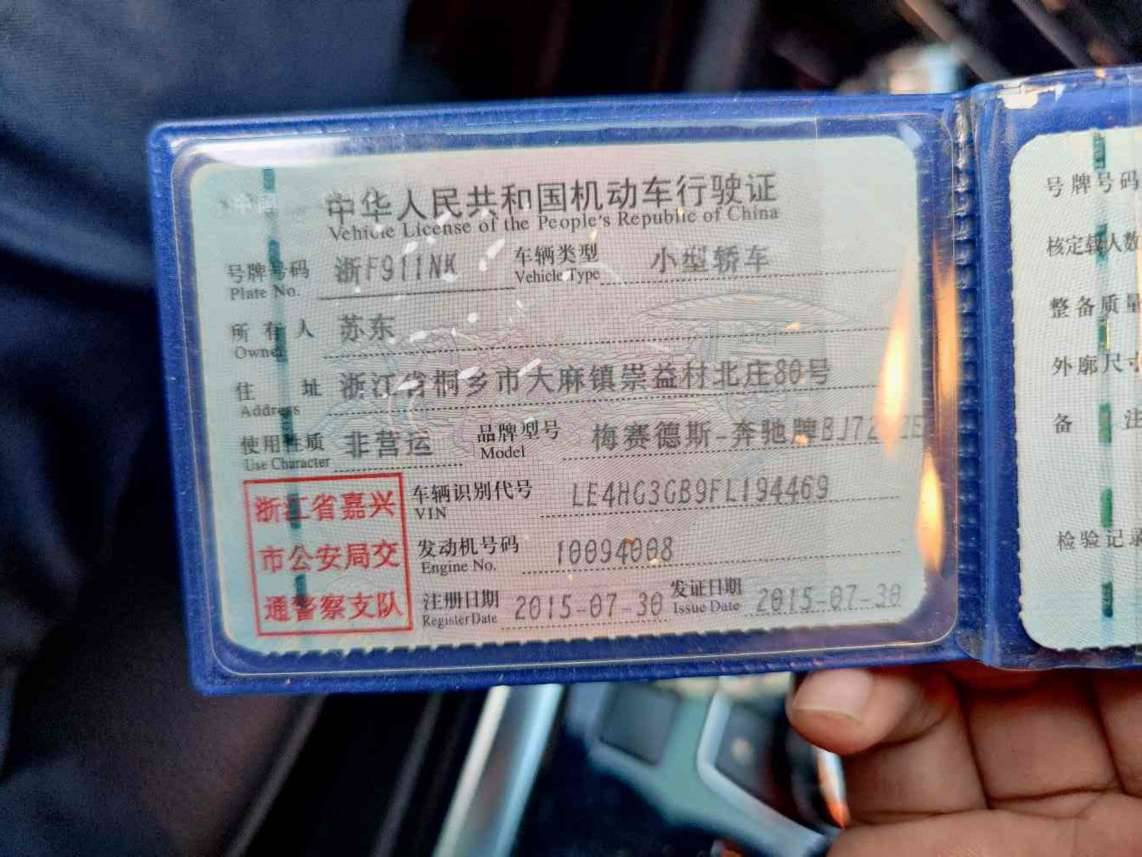 中华人民共和国机动车行驶证
Vehicle License of the People's Republic of China
号牌号码 浙F911NK 车辆类型 小型轿车
Plate No. Vehicle Type
所有人 苏东
Owner
住址 浙江省桐乡市大麻镇崇益村北庄80号
Address
使用性质 非营运 品牌型号 梅赛德斯-奔驰牌
Use Character Model
浙江省嘉兴
市公安局交
通警察支队
车辆识别代号 LE4HG3GB9FL194469
VIN
发动机号码 10094008
Engine No.
注册日期 2015-07-30 发证日期 2015-07-30
Register Date Issue Date
号牌号码
核定载人数
整备质量
外廓尺寸
备注
检验记录